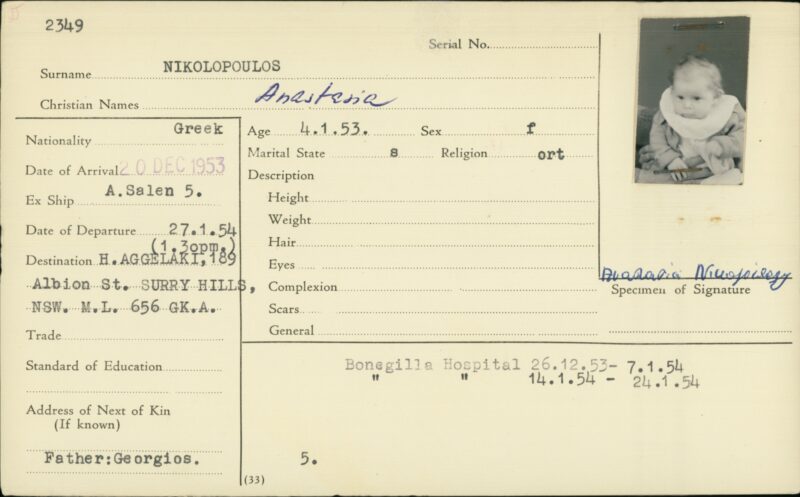 2349
Serial No.
Surname NIKOLOPOULOS
Christian Names Anastasia
Nationality Greek
Date of Arrival 20 DEC 1953
Ex Ship A.Salen 5.
Date of Departure 27.1.54
(1.30pm.)
Destination H.AGGELAKI,189
Albion St. SURRY HILLS,
NSW. M.L. 656 GK.A.
Trade
Standard of Education
Address of Next of Kin
(If known)
Father:Georgios.
Age 4.1.53. Sex f
Marital State s Religion ort
Description
Height
Weight
Hair
Eyes
Complexion
Scars
General
Specimen of Signature
Bonegilla Hospital 26.12.53- 7.1.54
" " 14.1.54 - 24.1.54
5.
(33)